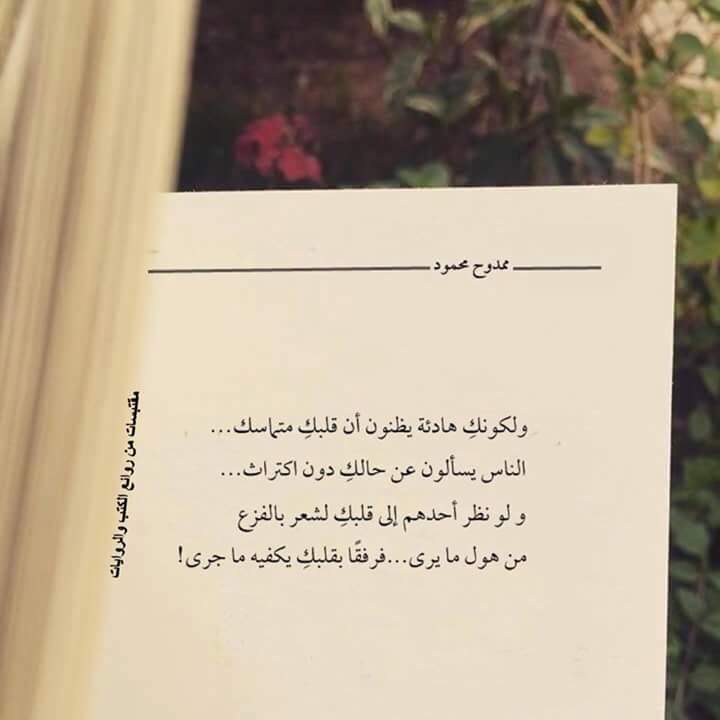 ممدوح محمود
ولكونكِ هادئة يظنون أن قلبكِ متماسك...
الناس يسألون عن حالكِ دون اكتراث...
و لو نظر أحدهم إلى قلبكِ لشعر بالفزع
من هول ما يرى...فرفقًا بقلبكِ يكفيه ما جرى!
مقتبسات من روائع الكتب والروايات